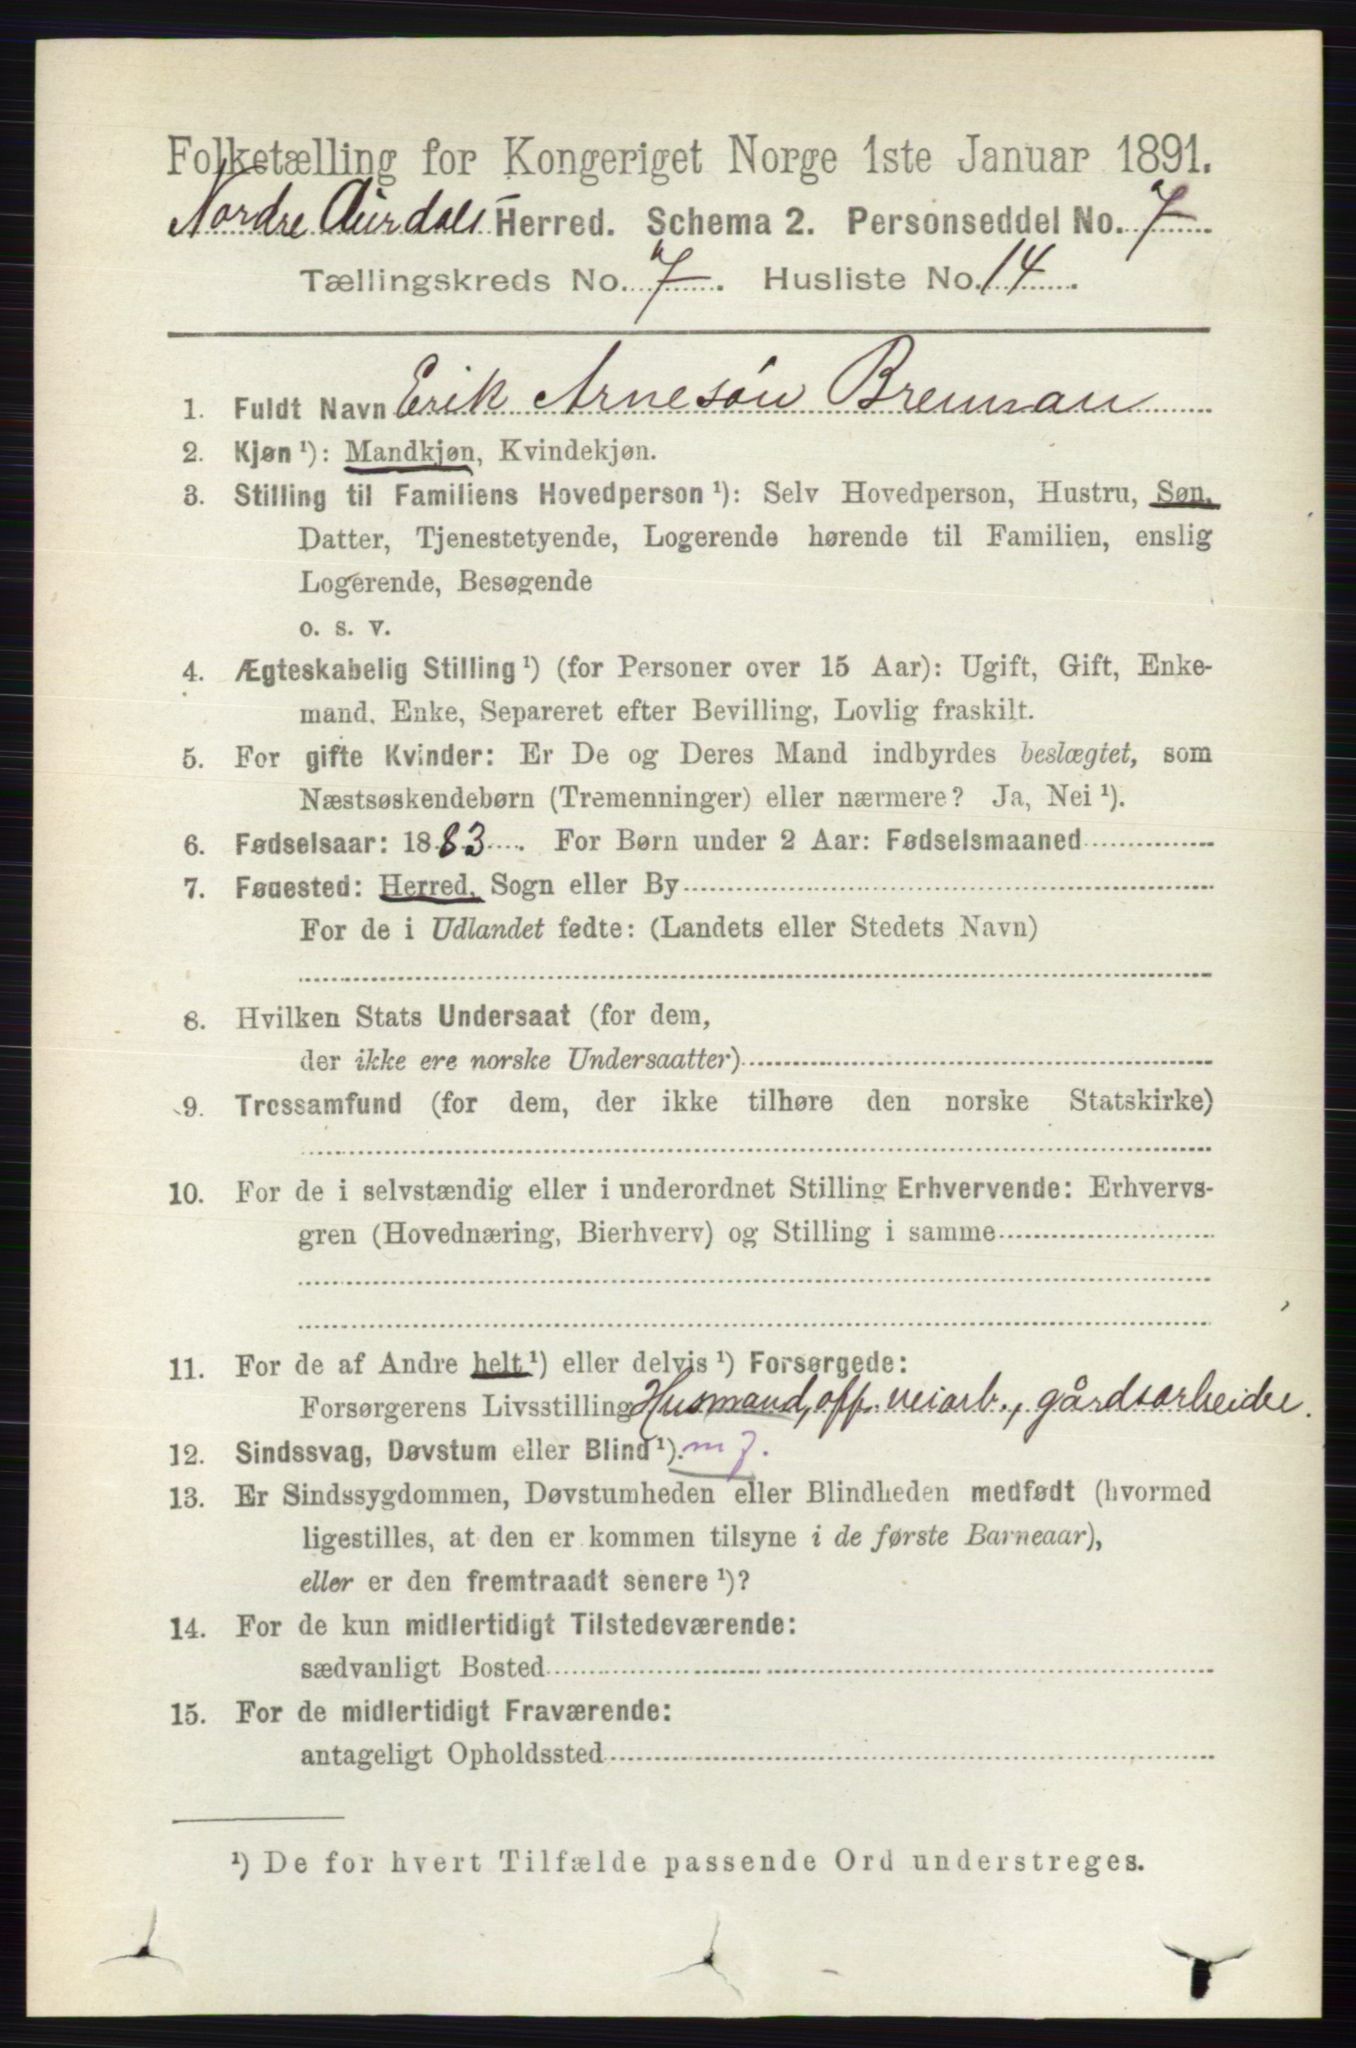 Folketælling for Kongeriget Norge 1ste Januar 1891.
Nordre Aurdals Herred. Schema 2. Personseddel No. 7
Tællingskreds No. 7. Husliste No. 14.
1. Fuldt Navn Erik Arnesøn Brennan
2. Kjøn ¹): Mandkjøn, Kvindekjøn.
3. Stilling til Familiens Hovedperson ¹): Selv Hovedperson, Hustru, Søn,
Datter, Tjenestetyende, Logerende hørende til Familien, enslig
Logerende, Besøgende
o. s. v.
4. Ægteskabelig Stilling ¹) (for Personer over 15 Aar): Ugift, Gift, Enke-
mand, Enke, Separeret efter Bevilling, Lovlig fraskilt.
5. For gifte Kvinder: Er De og Deres Mand indbyrdes beslægtet, som
Næstsøskendebørn (Tremenninger) eller nærmere? Ja, Nei ¹).
6. Fødselsaar: 1883. For Børn under 2 Aar: Fødselsmaaned
7. Fødested: Herred, Sogn eller By
For de i Udlandet fødte: (Landets eller Stedets Navn)
8. Hvilken Stats Undersaat (for dem,
der ikke ere norske Undersaatter)
9. Trossamfund (for dem, der ikke tilhøre den norske Statskirke)
10. For de i selvstændig eller i underordnet Stilling Erhvervende: Erhvervs-
gren (Hovednæring, Bierhverv) og Stilling i samme
11. For de af Andre helt ¹) eller delvis ¹) Forsørgede:
Forsørgerens Livsstilling Husmand, off. veiarb., gårdsarbeider.
12. Sindssvag, Døvstum eller Blind ¹).
13. Er Sindssygdommen, Døvstumheden eller Blindheden medfødt (hvormed
ligestilles, at den er kommen tilsyne i de første Barneaar),
eller er den fremtraadt senere ¹)?
14. For de kun midlertidigt Tilstedeværende:
sædvanligt Bosted
15. For de midlertidigt Fraværende:
antageligt Opholdssted
¹) De for hvert Tilfælde passende Ord understreges.